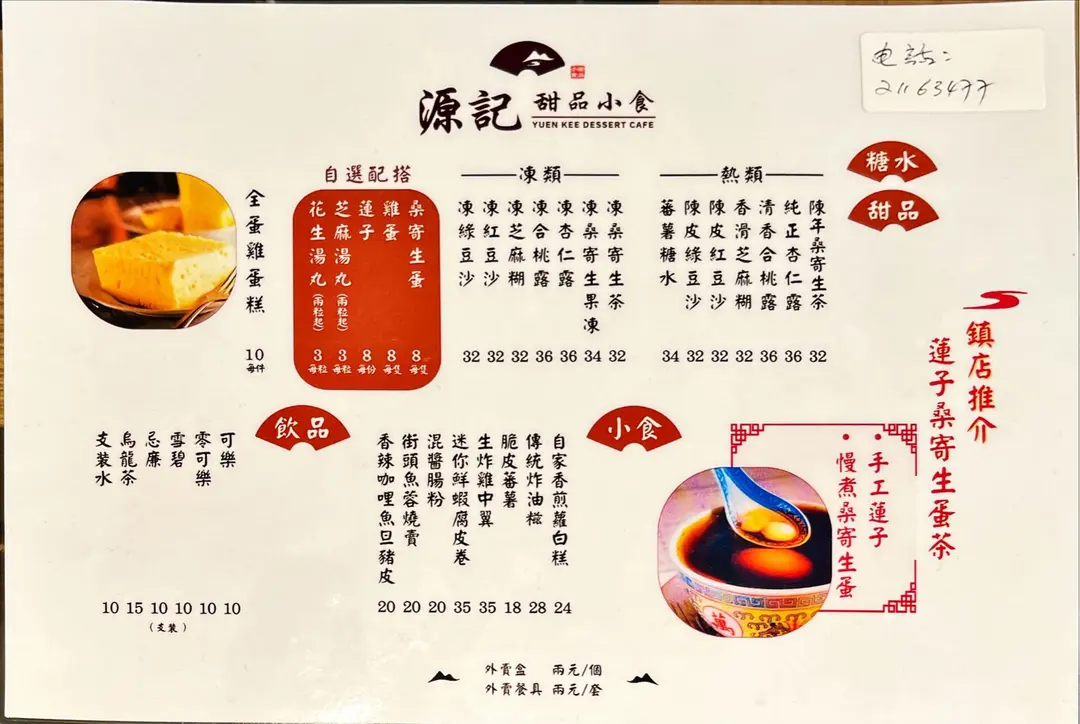 源記
甜品小食
YUEN KEE DESSERT CAFE
电話:
21163477
糖水
甜品
熱類
陳年桑寄生茶 32
純正杏仁露 36
清香合桃露 36
香滑芝麻糊 32
陳皮紅豆沙 32
陳皮綠豆沙 32
蕃薯糖水 34
凍類
凍桑寄生茶 32
凍桑寄生果凍 34
凍杏仁露 36
凍合桃露 36
凍芝麻糊 32
凍紅豆沙 32
凍綠豆沙 32
自選配搭
桑寄生蛋 8 每隻
雞蛋 8 每隻
蓮子 8 每份
芝麻湯丸(兩粒起) 3 每粒
花生湯丸(兩粒起) 3 每粒
全蛋雞蛋糕 10 每件
鎮店推介
蓮子桑寄生蛋茶
• 手工蓮子
• 慢煮桑寄生蛋
萬
小食
自家香煎蘿白糕 24
傳統炸油糍 28
脆皮蕃薯 18
生炸雞中翼 35
迷你鮮蝦腐皮卷 35
混醬腸粉 20
街頭魚蓉燒賣 20
香辣咖哩魚旦豬皮 20
飲品
可樂 10
零可樂 10
雪碧 10
忌廉 10
烏龍茶 15
支裝水 10
(支裝)
外賣盒 兩元/個
外賣餐具 兩元/套